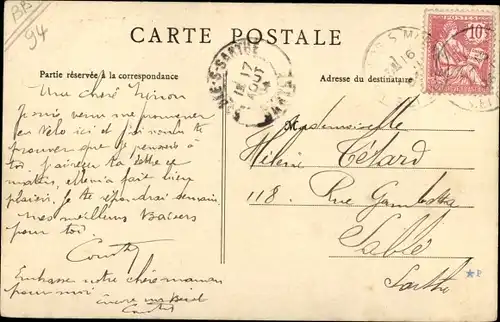 BB
94
CARTE POSTALE
Partie réservée à la correspondance
Adresse du destinataire
SABLÉ-S-SARTHE
17
AOUT
SARTHE
16
POSTES
10
Ma chère Ninon
Je suis venu me promener
en Vélo ici et je veux te
prouver que je pensais à
toi. J'ai reçu ta lettre ce
matin, elle m'a fait bien
plaisir, je te répondrai demain.
mes meilleurs Baisers
pour toi.
Embrasse notre chère maman
pour moi
Mademoiselle
Hélène Têtard
118. Rue Gambetta
Sablé
Sarthe